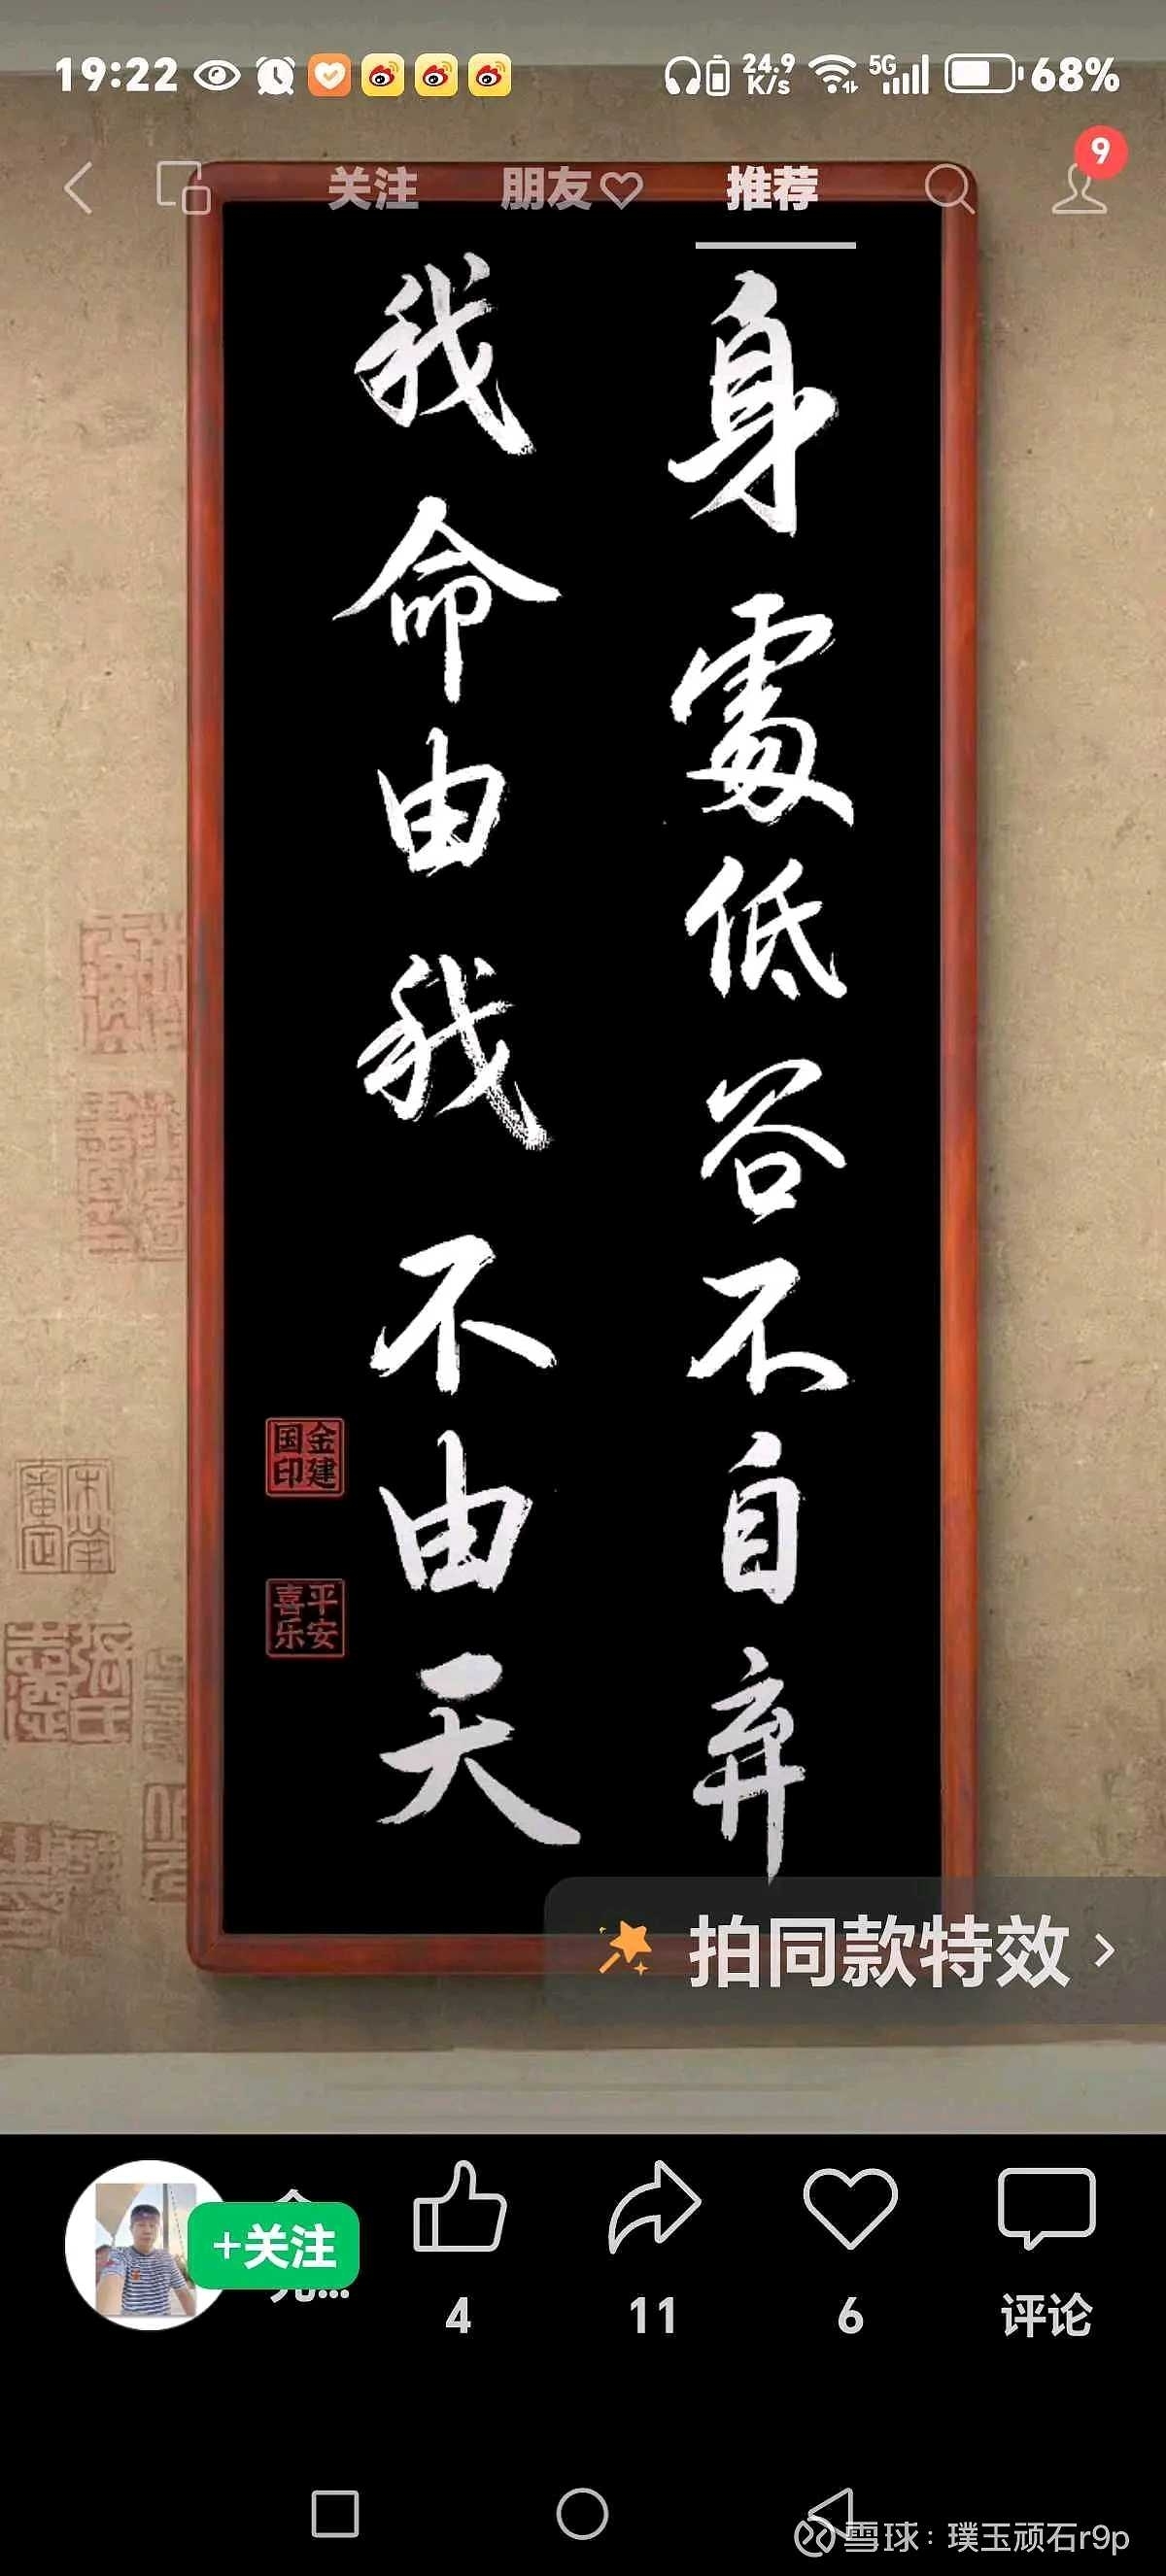 19:22
24.9 K/s
5G
68%
9
关注 朋友 推荐
身處低谷不自弃
我命由我不由天
金建国印
平安喜乐
拍同款特效
+关注
4 11 6 评论
雪球：璞玉顽石r9p